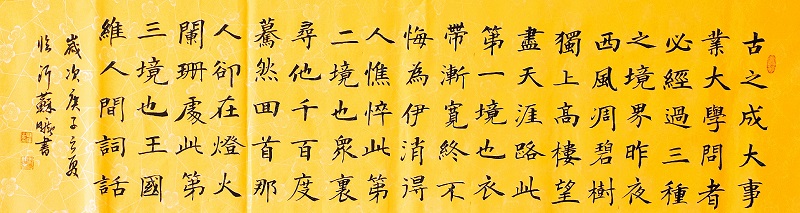 古之成大事
業大學問者
必經過三種
之境界昨夜
西風凋碧樹
獨上高樓望
盡天涯路此
第一境也衣
帶漸寬終不
悔為伊消得
人憔悴此第
二境也眾裏
尋他千百度
驀然囬首那
人卻在燈火
闌珊處此第
三境也王國
維人間詞話
歲次庚子立夏
臨沂蘇書